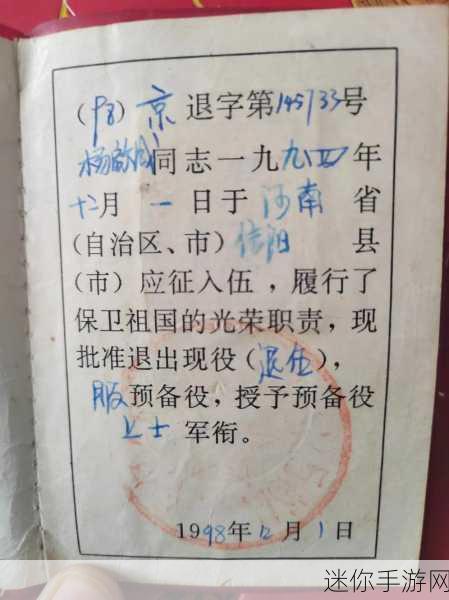 (98)京退字第145733号
杨 同志一九九四年
十二月一日于河南省
(自治区、市)信阳县
(市)应征入伍，履行了
保卫祖国的光荣职责，现
批准退出现役(退伍)，
服预备役，授予预备役
上士军衔。
1998年12月1日
迷你手游网